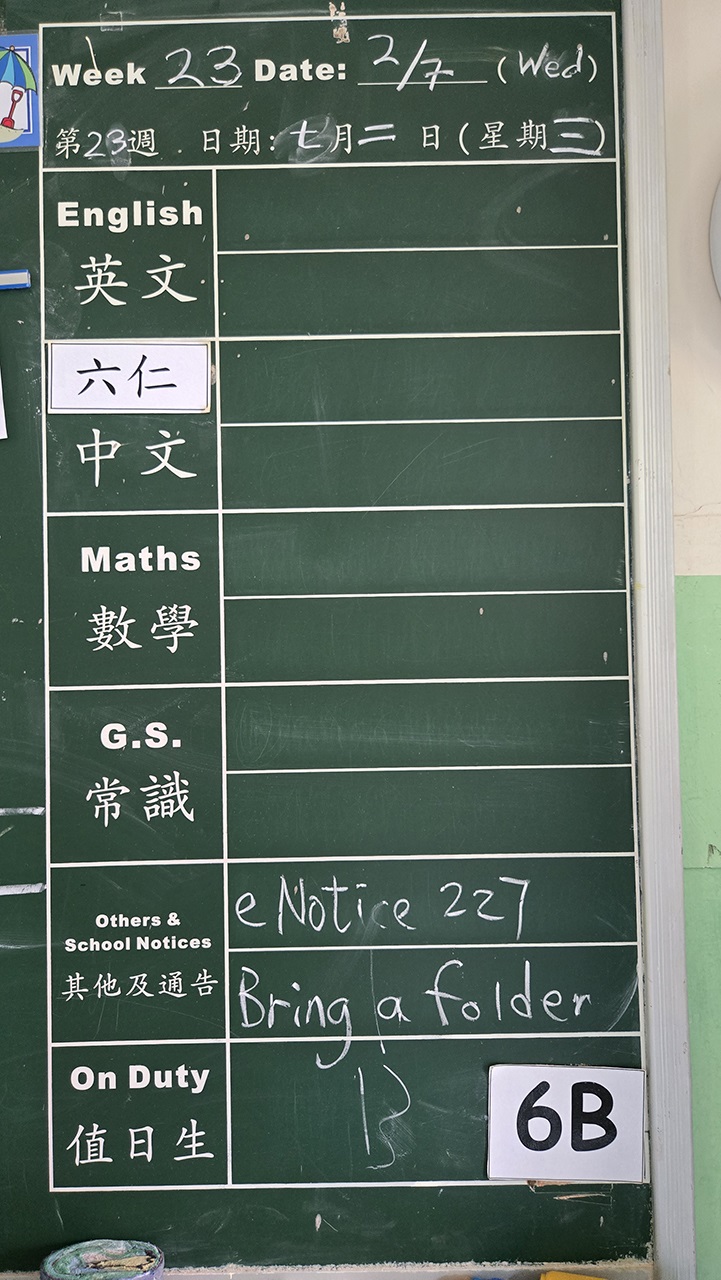 Week 23 Date: 2/7 (Wed)
第23週 日期: 七月二日(星期三)
English
英文
六仁
中文
Maths
數學
G.S.
常識
Others &
School Notices
其他及通告
eNotice 227
Bring a folder
On Duty
值日生
13
6B